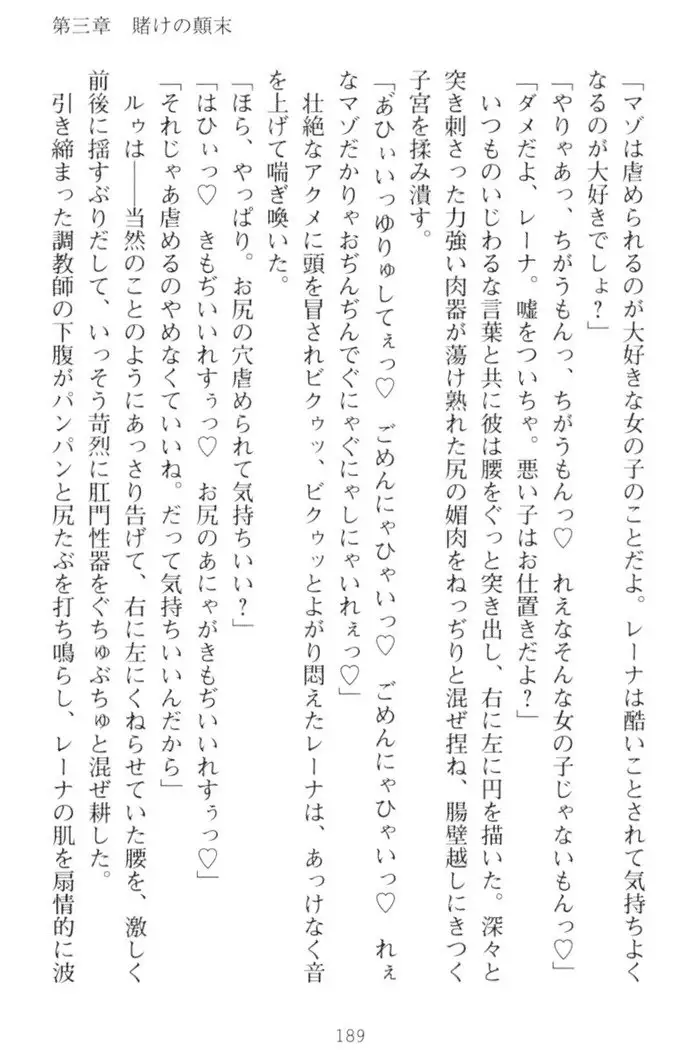 第三章　賭けの顛末
「マゾは虐められるのが大好きな女の子のことだよ。レーナは酷いことされて気持ちよく
なるのが大好きでしょ？」
「やりゃあっ、ちがうもんっ、ちがうもんっ♡　れえなそんな女の子じゃないもんっ♡」
「ダメだよ、レーナ。嘘をついちゃ。悪い子はお仕置きだよ？」
いつものいじわるな言葉と共に彼は腰をぐっと突き出し、右に左に円を描いた。深々と
突き刺さった力強い肉器が蕩け熟れた尻の媚肉をねっぢりと混ぜ捏ね、腸壁越しにきつく
子宮を揉み潰す。
「あ゛ひぃいっゆりゅしてぇっ♡　ごめんにゃひゃいっ♡　ごめんにゃひゃいっ♡　れぇ
なマゾだかりゃおぢんぢんでぐにゃぐにゃしにゃいれぇっ♡」
壮絶なアクメに頭を冒されビクゥッ、ビクゥッとよがり悶えたレーナは、あっけなく音
を上げて喘ぎ喚いた。
「ほら、やっぱり。お尻の穴虐められて気持ちいい？」
「はひぃっ♡　きもぢいいれすぅっ♡　お尻のあにゃがきもぢいいれすぅっ♡」
「それじゃあ虐めるのやめなくていいね。だって気持ちいいんだから」
ルゥは――当然のことのようにあっさり告げて、右に左にくねらせていた腰を、激しく
前後に揺すぶりだして、いっそう苛烈に肛門性器をぐちゅぶちゅと混ぜ耕した。
引き締まった調教師の下腹がパンパンと尻たぶを打ち鳴らし、レーナの肌を扇情的に波
189